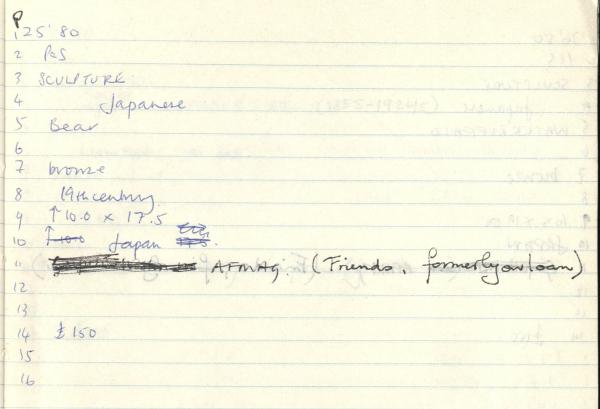 1 25'80
2 P&S
3 SCULPTURE
4 Japanese
5 Bear
6
7 bronze
8 19th century
9 ↑10.0 x 17.5
10 Japan
11 AFMAG. (Friends, formerly on loan)
12
13
14 £150
15
16